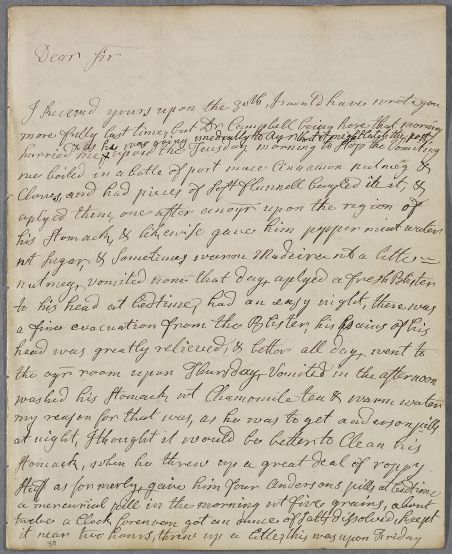 Dear Sir
I receved yours upon the 30th, I would have wrote you
more fully last time, but Dr Campbell being here that morning
& as he was going imedialy to Ayr that it might catch the post,
hurried me, upon the Teusday morning to stop the vomiting
we boiled in a botle of port mace Cinnamon nutmeg &
Cloves, and had pieces of soft flannell boyled in it, &
aplyed them one after anoyr upon the region of
his stomack, & likewise gave him pepper mint water
wt sugar, & sometimes warm Madeira wt a litle
nutmeg, vomited none that day, aplyed a fresh Blister
to his head at bedtime, had an easy night, there was
a fine evacuation from the Blister, his pains of his
head was greatly relieved, & better all day, went to
the oyr room upon Thursday, Vomited in the afternoon
washed his stomack wt Chamomile tea & warm water
my reason for that was, as he was to get andersons pills
at night, I thought it would be better to Clean his
stomack, when he threw up a great deal of ropy
stuff as formerly, gave him four Andersons pills at bedtime
a mercurial pill in the morning wt five grains, about
twelve a Clock forenoon got an ounce of salts disolved, keept
it near two hours, threw up a litle, this was upon Friday